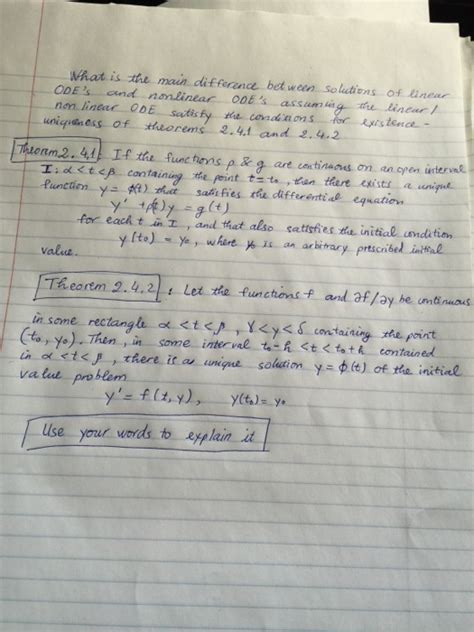 What is the main difference between solutions of linear
ODE's and nonlinear ODE's assuming the linear /
non linear ODE satisfy the conditions for existence -
uniqueness of theorems 2.4.1 and 2.4.2
Theorem 2.4.1: If the functions p & g are continuous on an open interval
I: α<t<β containing the point t=t₀, then there exists a unique
function y = φ(t) that satisfies the differential equation
y' + p(t)y = g(t)
for each t in I, and that also satisfies the initial condition
y(t₀) = y₀, where y₀ is an arbitrary prescribed initial
value.
Theorem 2.4.2 : Let the functions f and ∂f/∂y be continuous
in some rectangle α<t<β, γ<y<δ containing the point
(t₀, y₀). Then, in some interval t₀-h <t<t₀+h contained
in α<t<β, there is a unique solution y=φ(t) of the initial
value problem
y' = f(t,y), y(t₀)=y₀
Use your words to explain it